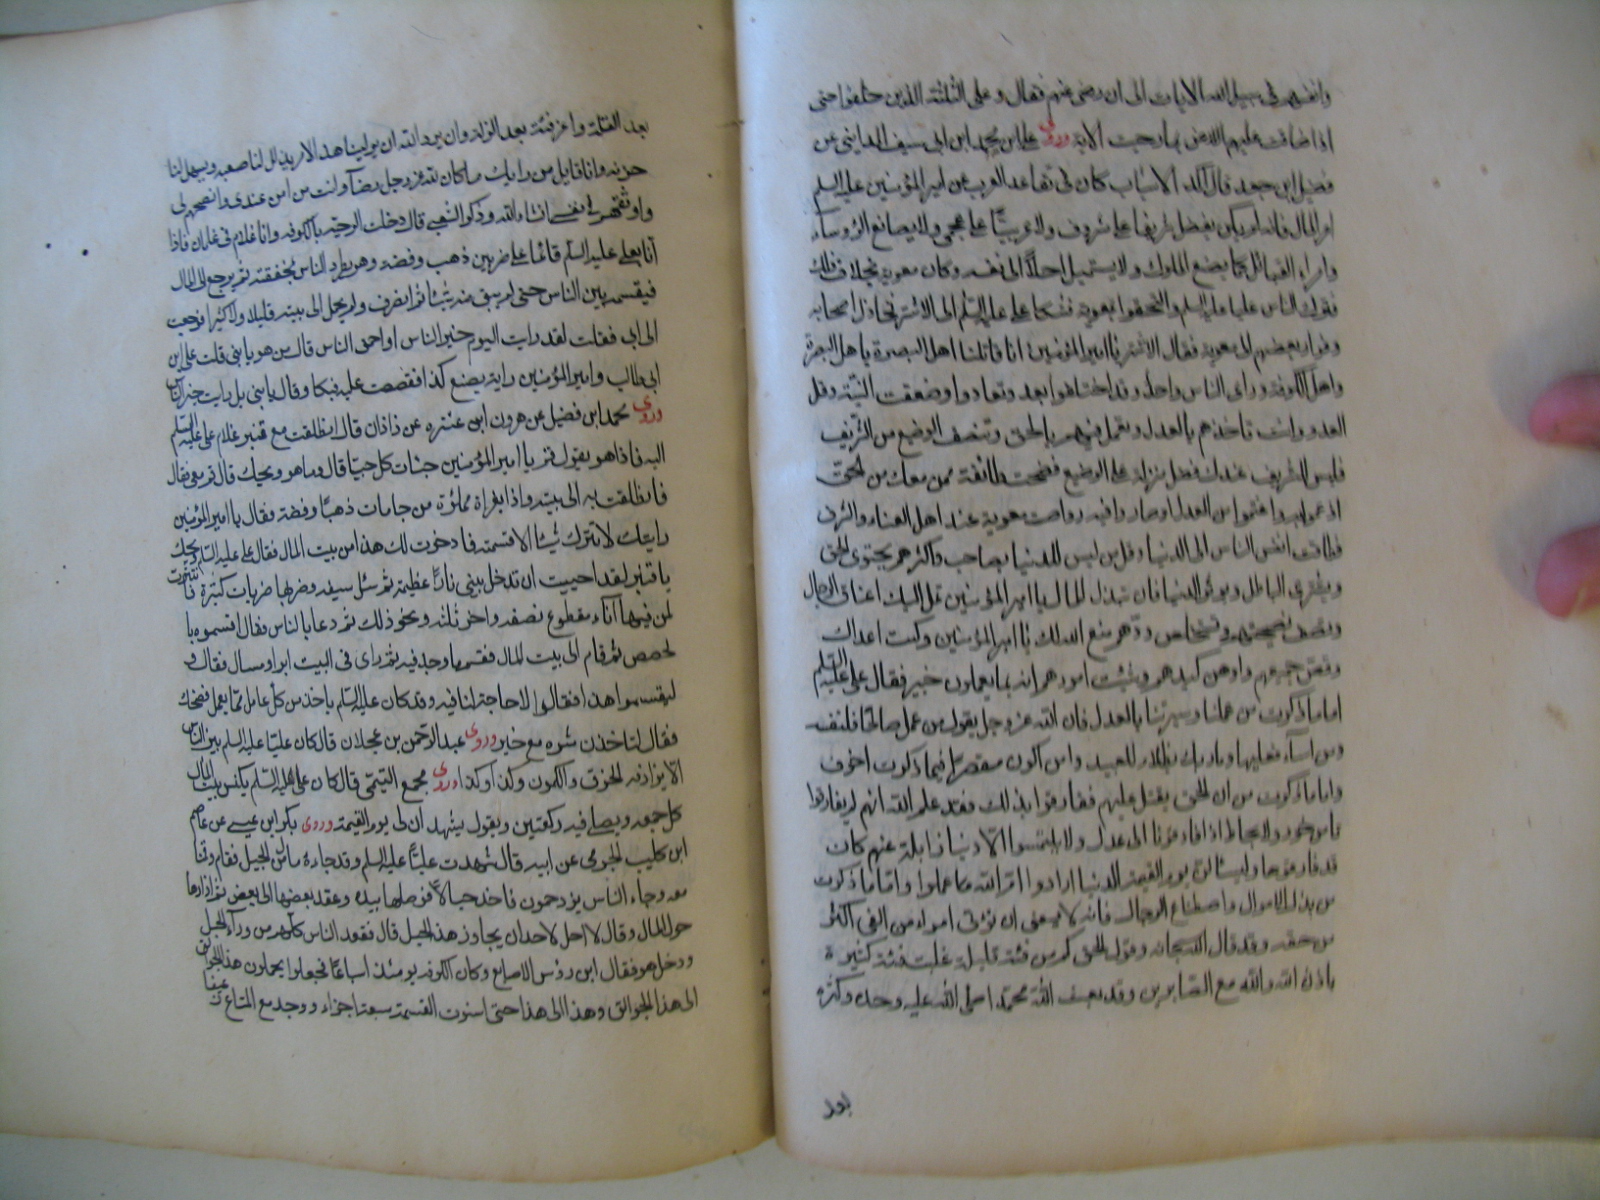 وانفسهم في سبيل الله الايات الى ان رضى عنهم فقال وعلى الثلثة الذين خلفوا حتى
اذا ضاقت عليهم الارض بما رحبت الاية وروى على بن محمد ابن ابى سيف المدايني عن
فضيل ابن جعد قال اكد الاسباب كان في تقاعد العرب عن امير المؤمنين عليه السلم
امر المال فانه لم يكن يفضل شريفا على مشروف ولا عربيا على عجمي ولا يصانع الرؤساء
وامراء القبائل كما يصنع الملوك ولا يستميل احدا الى نفسه وكان معوية بخلاف ذلك
فترك الناس عليا عليه السلم والتحقوا بمعوية فشكا على عليه السلم الى الاشتر تخاذل اصحابه
وفرار بعضهم الى معوية فقال الاشتر يا امير المؤمنين انا قاتلنا اهل البصرة باهل البصرة
واهل الكوفة وراى الناس واحد وقد اختلفوا بعد وتعادوا وضعفت النية وقل
العدد وانت تاخذهم بالعدل وتعمل فيهم بالحق وتنصف الوضيع من الشريف
فليس للشريف عندك فضل منزلة على الوضيع فضجت طائفة ممن معك من الحق
اذ عموا به واغتموا من العدل اذ صاروا فيه وراوا صنائع معوية عند اهل الغناء والشرف
فتاقت انفس الناس الى الدنيا وقل من ليس للدنيا بصاحب واكثرهم يجتوى الحق
ويشترى الباطل ويوثر الدنيا فان تبذل المال يا امير المؤمنين تمل اليك اعناق الرجال
وتصف نصيحتهم وتستخلص ودهم صنع الله لك يا امير المؤمنين وكبت اعداك
وفض جمعهم واوهن كيدهم وشتت امورهم انه بما يعملون خبير فقال على عليه السلم
اما ما ذكرت من عملنا وسيرتنا بالعدل فان الله عز وجل يقول من عمل صالحا فلنفسه
ومن اساء فعليها وما ربك بظلام للعبيد وانا من ان اكون مقصرا فيما ذكرت اخوف
واما ما ذكرت من ان الحق يثقل عليهم ففارقوا بذلك فقد علم الله انهم لم يفارقوا
نا من جور ولا لجاوا اذا فارقونا الى عدل ولا يلتمسوا الا دنيا زايلة عنهم كان
قد فارقوها وليسئلن يوم القيمة الدنيا ارادوا ام لله ما عملوا واما ما ذكرت
من بذل الاموال واصطناع الرجال فانه لا يسعنى ان نؤتى امراء من الفئ اكثر
من حقه وقد قال الله سبحانه وقوله الحق كم من فئة قليلة غلبت فئة كثيرة
باذن الله والله مع الصابرين وقد بعث الله محمدا صلى الله عليه وحده وكثره
بعد
بعد القلة واعز فئته بعد الذلة وان يرد الله ان يولينا هذا الامر يذلل لنا صعبه ويسهل لنا
حزنه وانا قابل من رايك ما كان لله عز وجل رضا وانت من امن عندى وانصحهم لى
واوثقهم في نفسي انشاء الله وذكر الشعبى قال دخلت الرحبة بالكوفه وانا غلام في غلمان فاذا
انا بعلي عليه السلم قائما على صرتين ذهب وفضة وهو يطرد الناس بمخفقته ثم يرجع الى المال
فيقسمه بين الناس حتى لم يبق منه شيئا ثم انصرف ولم يحمل الى بيته قليلا ولا كثيرا فرجعت
الى ابى فقلت لقد رايت اليوم خير الناس او احمق الناس قال من هو يا بنى قلت على ابن
ابى طالب امير المؤمنين رايته يصنع كذا فقصصت عليه فبكا وقال يا بنى بل رايت خير الناس
وروى محمد ابن فضيل عن هرون ابن عنتره عن زاذان قال انطلقت مع قنبر غلام على عليه السلم
اليه فاذا هو يقول قم يا امير المؤمنين خبئات لك خبيئا قال وما هو ويحك قال قم معى فقام
فانطلقت به الى بيته واذا بغرارة مملؤة من جامات ذهبا وفضة فقال يا امير المؤمنين
رايتك لا تترك شيئا الا قسمته فادخرت لك هذا من بيت المال فقال على عليه السلم ويحك
يا قنبر لقد احببت ان تدخل بيتى نارا عظيمة ثم سل سيفه وضربها ضربات كثيرة فانتثرت
من فيها اناء مقطوع نصفه واخر ثلثه ونحو ذلك ثم دعا بالناس فقال اقسموه با
لحصص ثم قام الى بيت المال فقسم ما وجد فيه ثم راى في البيت ابرا ومسال فقال و
ليقسموا هذا فقالوا لا حاجة لنا فيه وقد كان عليه السلم ياخذ من كل عامل مما يعمل فضحك
فقال لتاخذن شره مع خيره وروى عبد الرحمن بن عجلان قال كان عليا عليه السلم يقسم بين الناس
الابزار والحرف والكمون وكذا وكذا وروى مجمع التيمى قال كان على عليه السلم يكنس بيت المال
كل جمعه ويصلى فيه ركعتين ويقول ليشهد ان لى يوم القيمة وروى بكر ابن عيسى عن عاصم
ابن كليب الجرمى عن ابيه قال شهدت عليا عليه السلم وقد جاءه مال من الجبل فقام وقمنا
معه وجاء الناس يزدحمون فاخذ حبالا فوصلها بيده وعقد بعضها الى بعض ثم ادارها
حول المال وقال لا احل لاحد ان يجاوز هذا الحبل قال فقعد الناس كلهم من وراء الحبل
ودخل هو فقال اين رؤس الاسباع وكان الكوفه يومئذ اسباعا فجعلوا يحملون هذا الجوالق
الى هذا الجوالق وهذا الى هذا حتى استوت القسمة سبعة اجزاء ووجد مع المتاع رغيفا